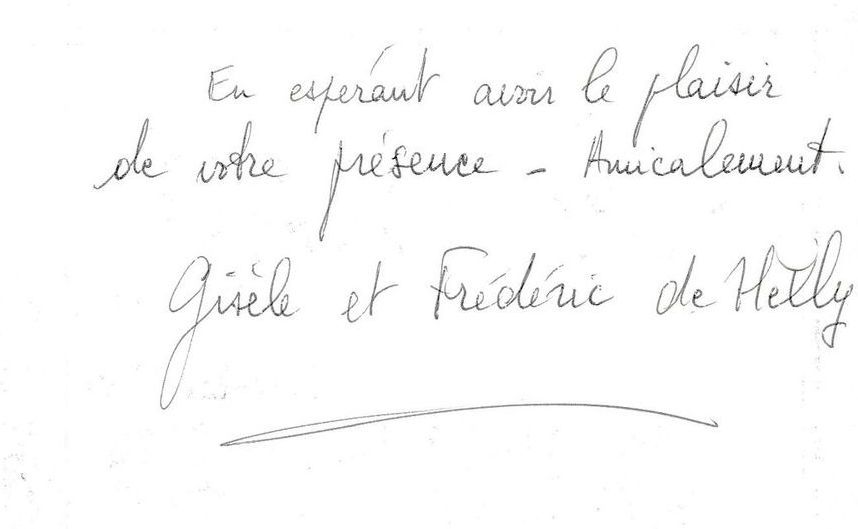 En espérant avoir le plaisir
de votre présence - Amicalement.
Gisèle et Frédéric de Helly